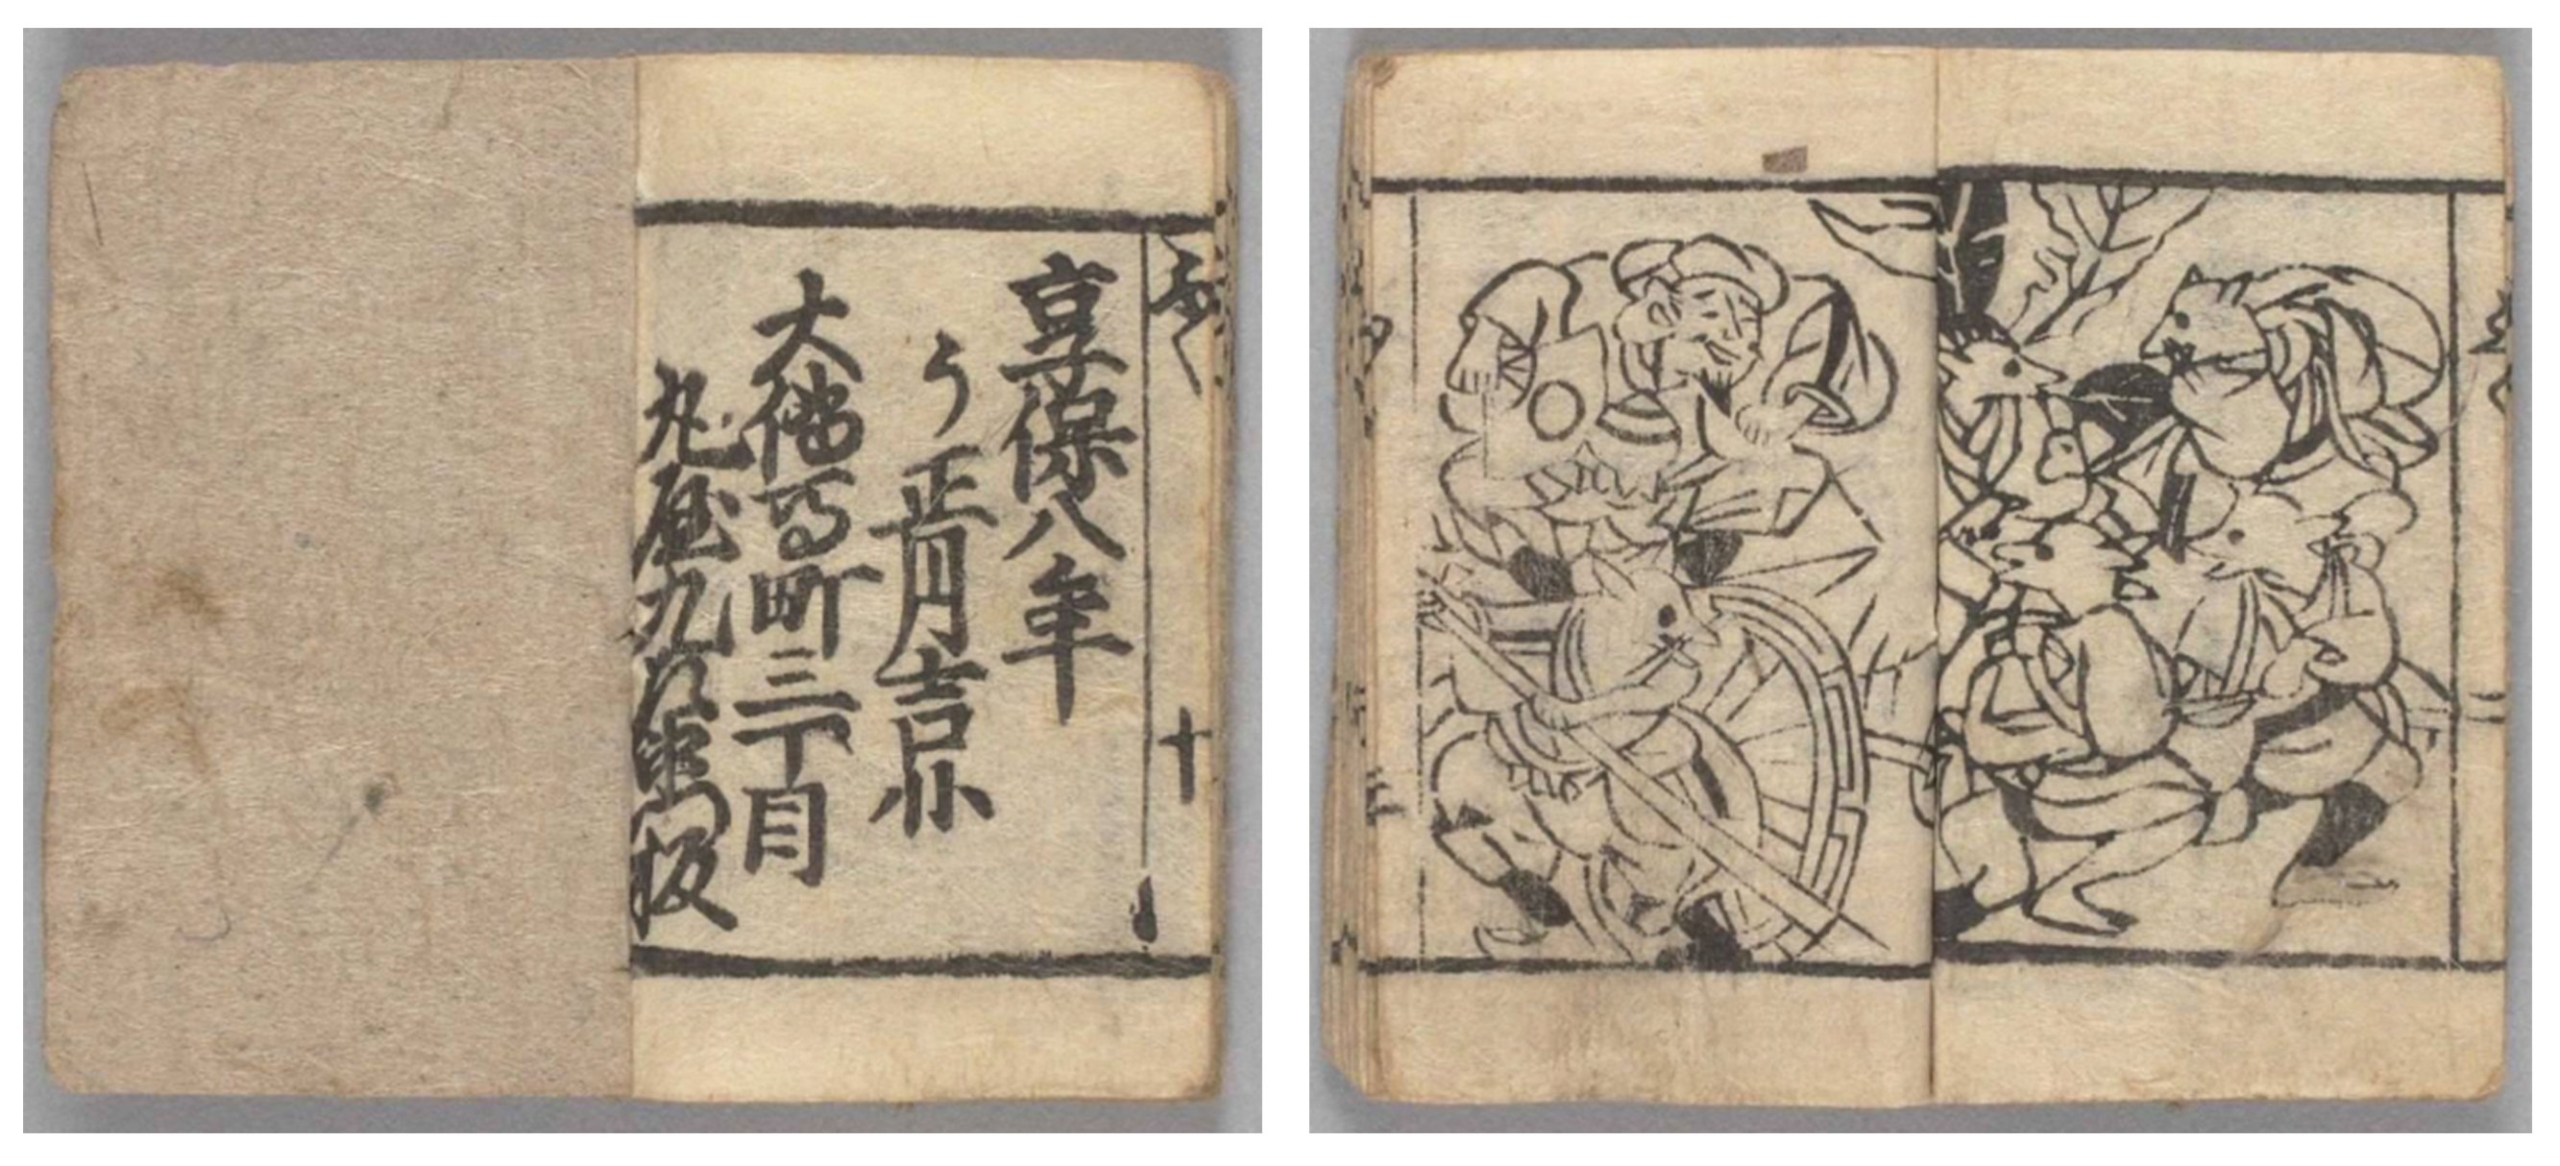 ふく
十
享保八年
う正月吉
大佛馬町三丁目
丸屋九左衛門板